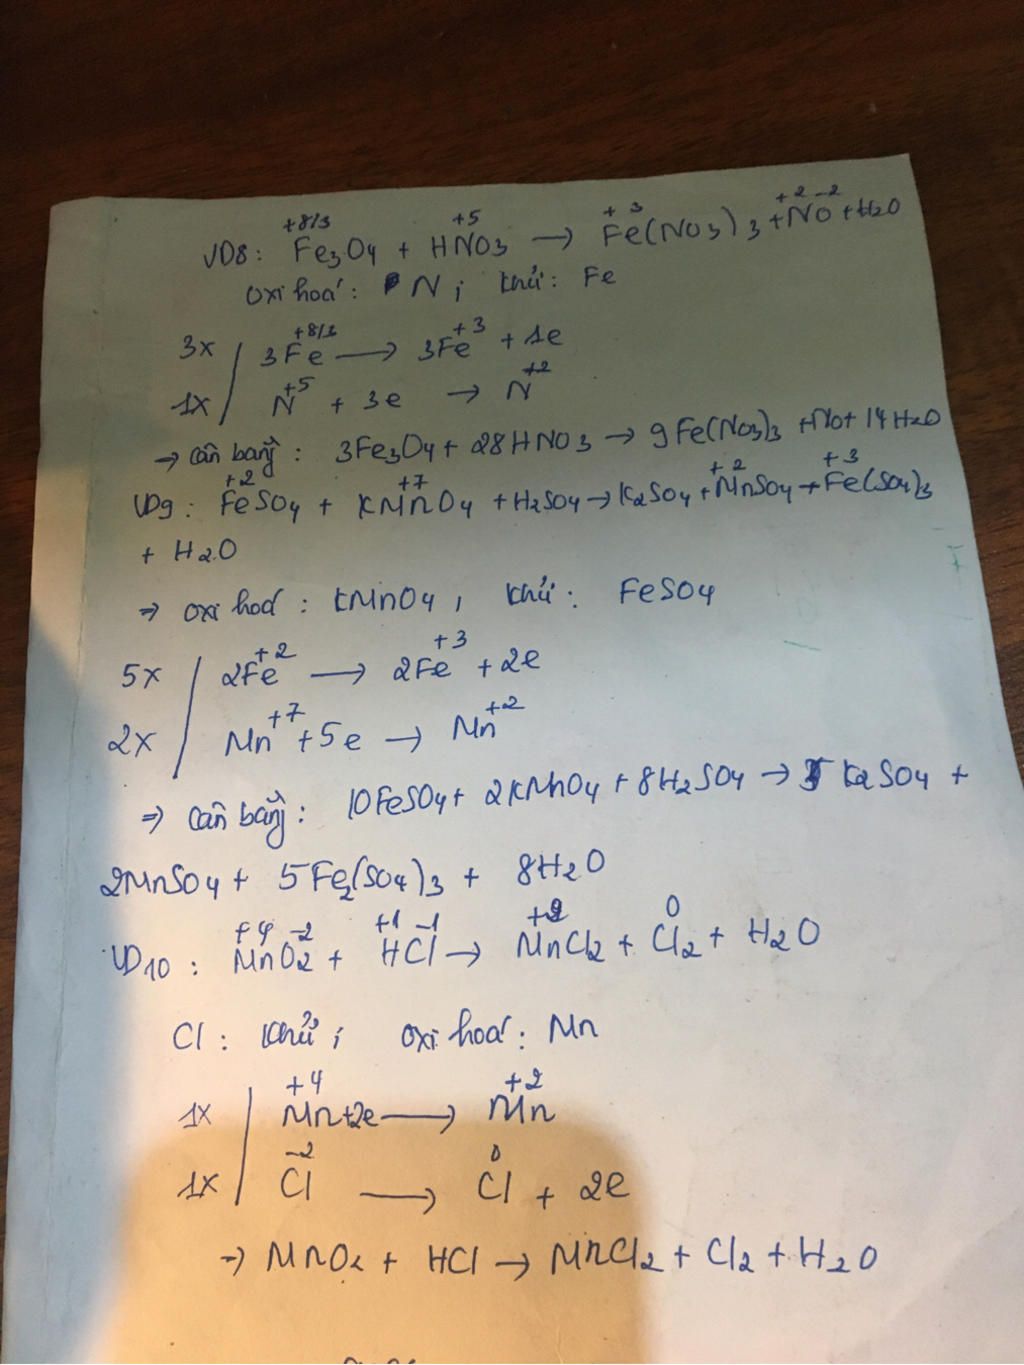 +8/3 +5 +3 +2 -2
VD8: Fe3O4 + HNO3 → Fe(NO3)3 + NO + H2O
oxi hoá: N; khử: Fe
+8/3 +3
3x | 3Fe → 3Fe + 1e
+5 +2
1x | N + 3e → N
→ cân bằng: 3Fe3O4 + 28HNO3 → 9Fe(NO3)3 + NO + 14H2O
+2 +7 +2 +3
VD9: FeSO4 + KMnO4 + H2SO4 → K2SO4 + MnSO4 + Fe(SO4)3
+ H2O
⇒ oxi hoá: KMnO4, khử: FeSO4
+2 +3
5x | 2Fe → 2Fe + 2e
+7 +2
2x | Mn + 5e → Mn
⇒ cân bằng: 10FeSO4 + 2KMnO4 + 8H2SO4 → K2SO4 +
2MnSO4 + 5Fe2(SO4)3 + 8H2O
+4 -2 +1 -1 +2 0
VD10: MnO2 + HCl → MnCl2 + Cl2 + H2O
Cl: khử; oxi hoá: Mn
+4 +2
1x | Mn+2e → Mn
-2 0
1x | Cl → Cl + 2e
⇒ MnO2 + HCl → MnCl2 + Cl2 + H2O